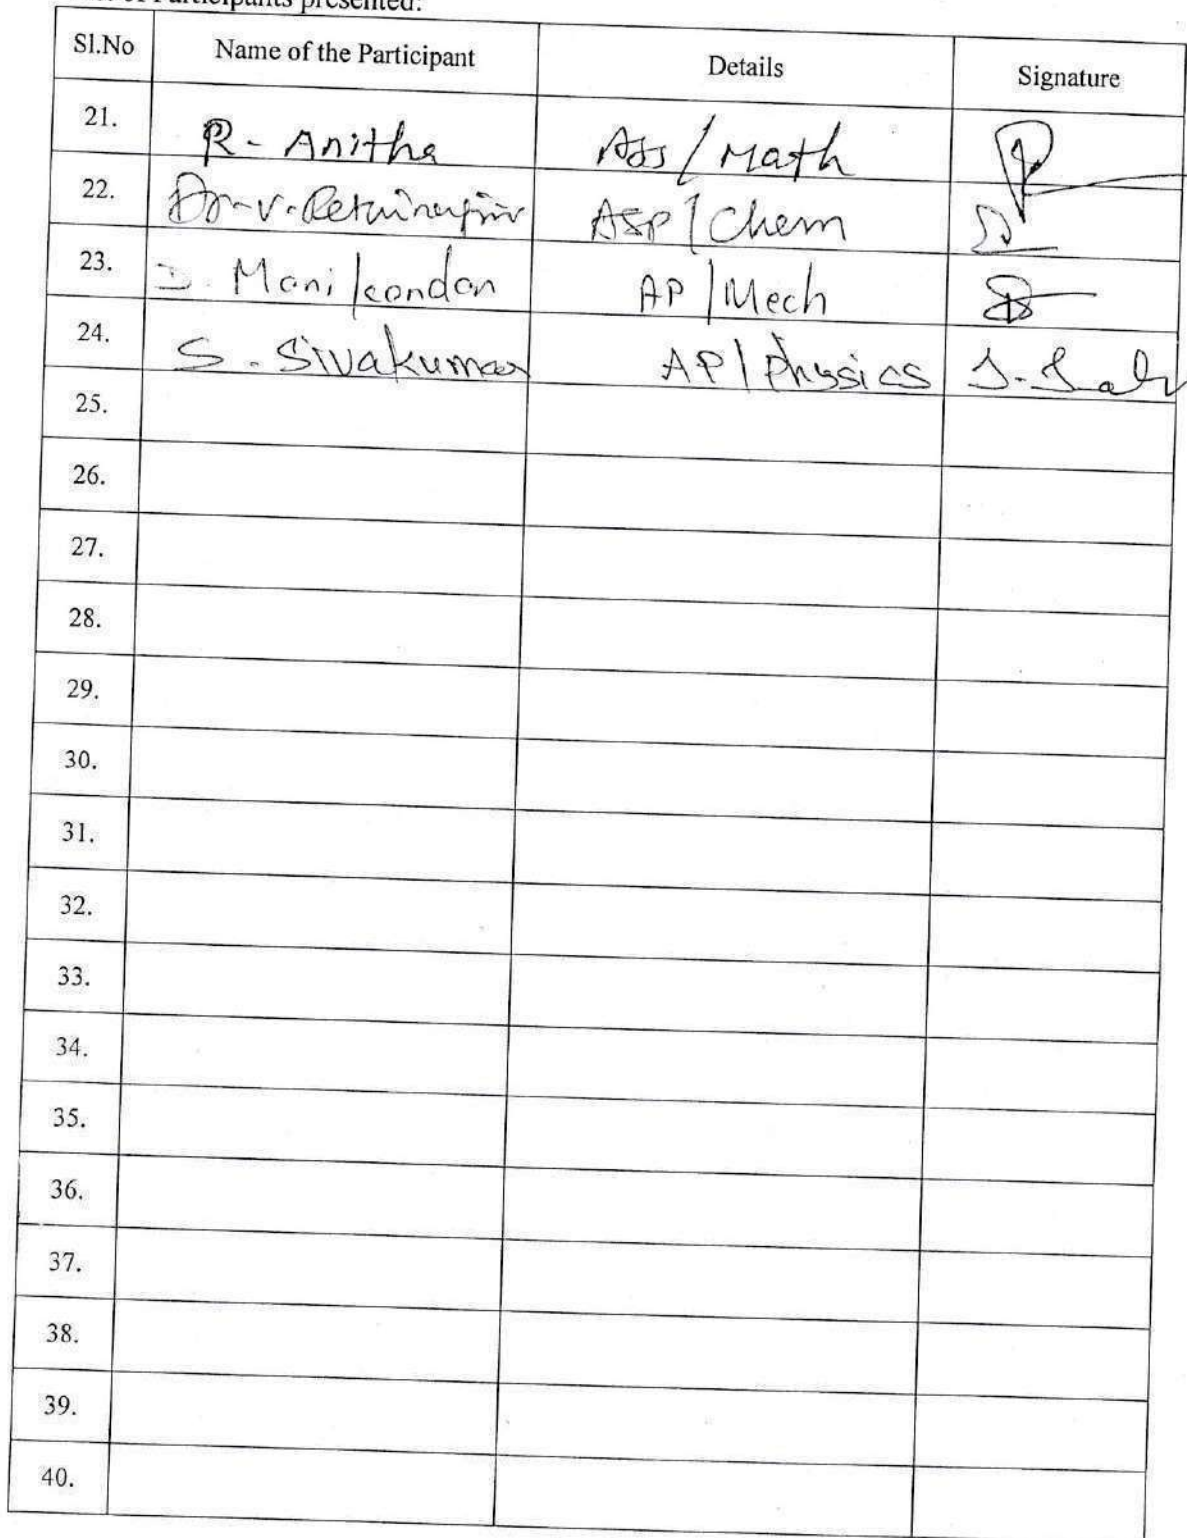 of Participants presented:
Sl.No Name of the Participant Details Signature
21. R. Anitha Ass/Math
22. Dr. V. ASP/Chem
23. D. Manikandan AP/Mech
24. S. Sivakumar AP/Physics
25.
26.
27.
28.
29.
30.
31.
32.
33.
34.
35.
36.
37.
38.
39.
40.